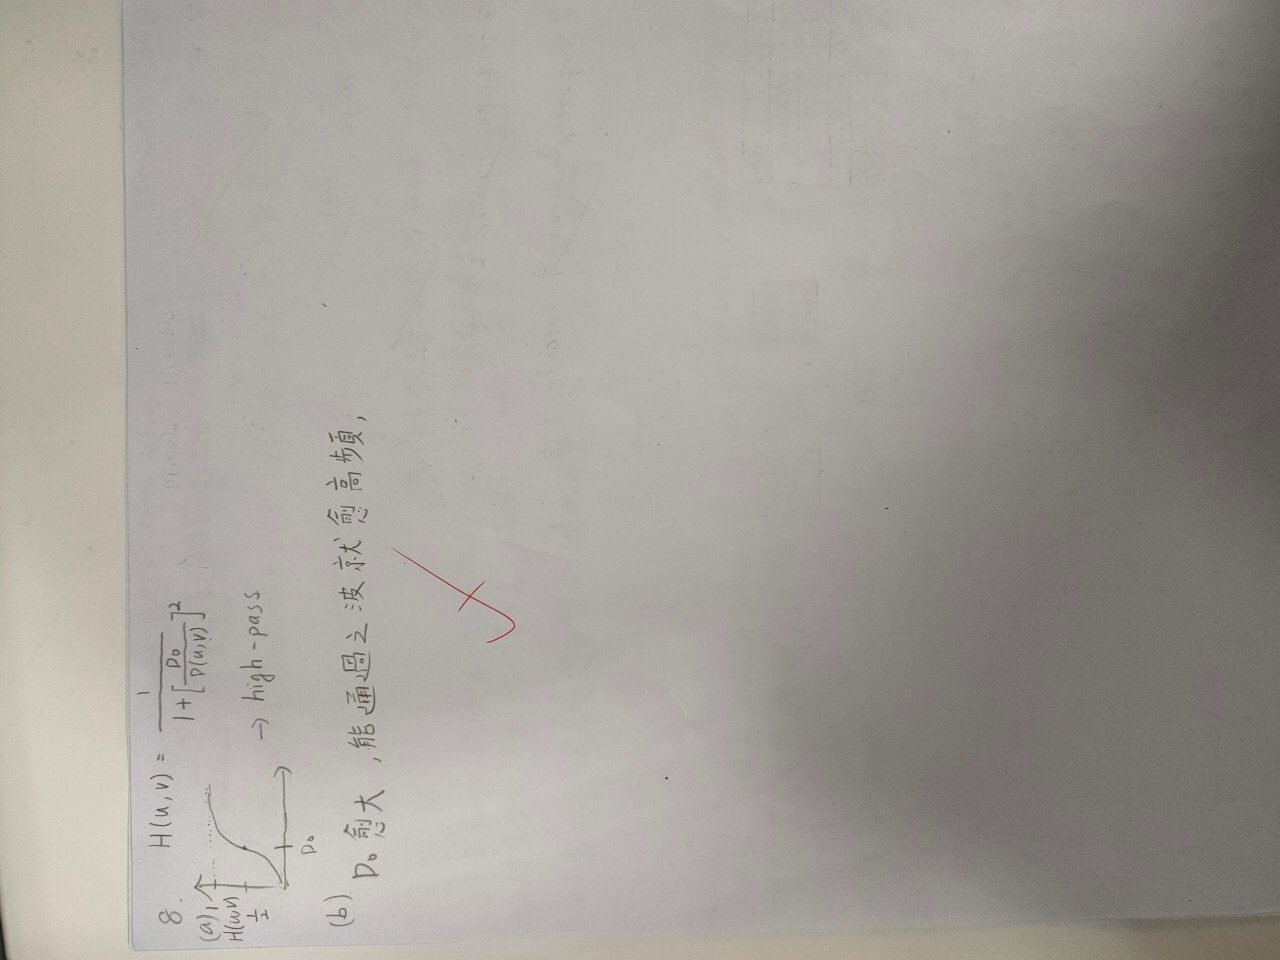 8.
H(u,v) = 1 / 1+[D₀/D(u,v)]²
(a) 1
H(u,v)
1/2
D₀
→ high-pass
(b)
D₀愈大,能通過之波就愈高頻,